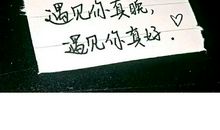 遇见你真晚，
遇见你真好.♡